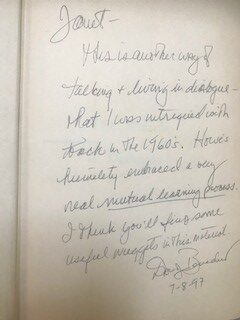 Janet -
This is another way of
talking + living in dialogue -
that I was intrigued with
back in the 1960's. Howe's
humility embraced a very
real mutual learning process.
I think you'll find some
useful nuggets in this material
7-8-97